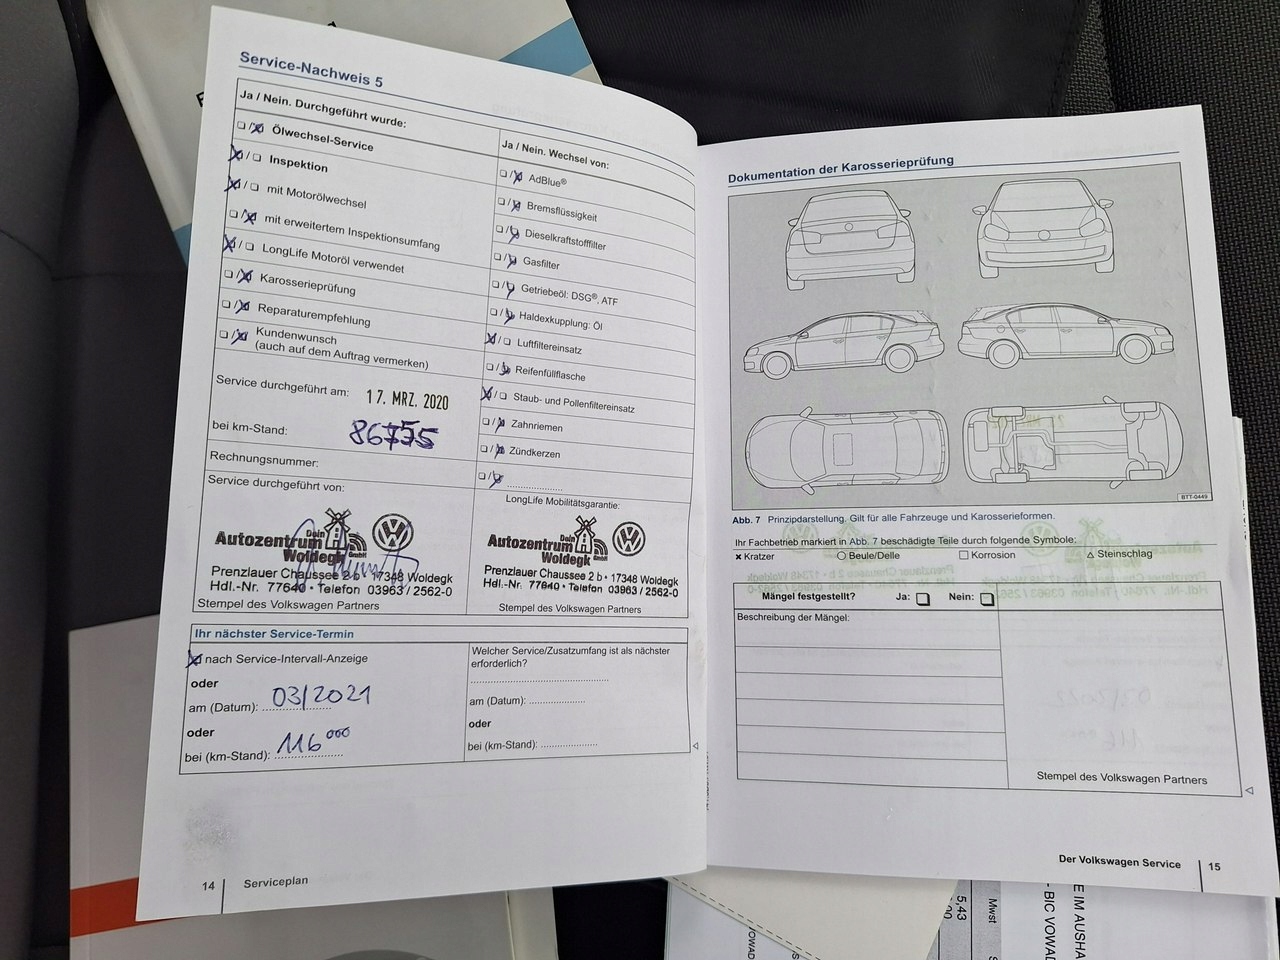 Service-Nachweis 5
Ja / Nein. Durchgeführt wurde:
Ölwechsel-Service
Inspektion
mit Motorölwechsel
mit erweitertem Inspektionsumfang
LongLife Motoröl verwendet
Karosserieprüfung
Reparaturempfehlung
Kundenwunsch
(auch auf dem Auftrag vermerken)
Service durchgeführt am: 17. MRZ. 2020
bei km-Stand: 86755
Rechnungsnummer:
Service durchgeführt von:
Dein
Autozentrum
Woldegk GmbH
Prenzlauer Chaussee 2 b · 17348 Woldegk
Hdl.-Nr. 77640 · Telefon 03963 / 2562-0
Stempel des Volkswagen Partners
Ja / Nein. Wechsel von:
AdBlue®
Bremsflüssigkeit
Dieselkraftstofffilter
Gasfilter
Getriebeöl: DSG®, ATF
Haldexkupplung: Öl
Luftfiltereinsatz
Reifenfüllflasche
Staub- und Pollenfiltereinsatz
Zahnriemen
Zündkerzen
LongLife Mobilitätsgarantie:
Dein
Autozentrum
Woldegk GmbH
Prenzlauer Chaussee 2 b · 17348 Woldegk
Hdl.-Nr. 77640 · Telefon 03963 / 2562-0
Stempel des Volkswagen Partners
Ihr nächster Service-Termin
nach Service-Intervall-Anzeige
oder
am (Datum): 03/2021
oder
bei (km-Stand): 116 000
Welcher Service/Zusatzumfang ist als nächster
erforderlich?
am (Datum):
oder
bei (km-Stand):
14 Serviceplan
Dokumentation der Karosserieprüfung
BTT-0449
Abb. 7 Prinzipdarstellung. Gilt für alle Fahrzeuge und Karosserieformen.
Ihr Fachbetrieb markiert in Abb. 7 beschädigte Teile durch folgende Symbole:
× Kratzer ○ Beule/Delle □ Korrosion △ Steinschlag
Mängel festgestellt? Ja: Nein:
Beschreibung der Mängel:
Stempel des Volkswagen Partners
Der Volkswagen Service 15
5,43
Mwst
E IM AUSHA
- BIC VOWAD